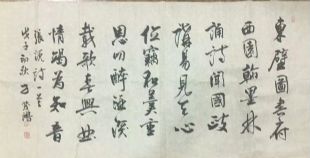 東壁圖書府
西園翰墨林
誦詩聞國政
講易見天心
位竊和羹重
恩叨醉酒深
載歌春興曲
情竭為知音
張說詩一首
初秋